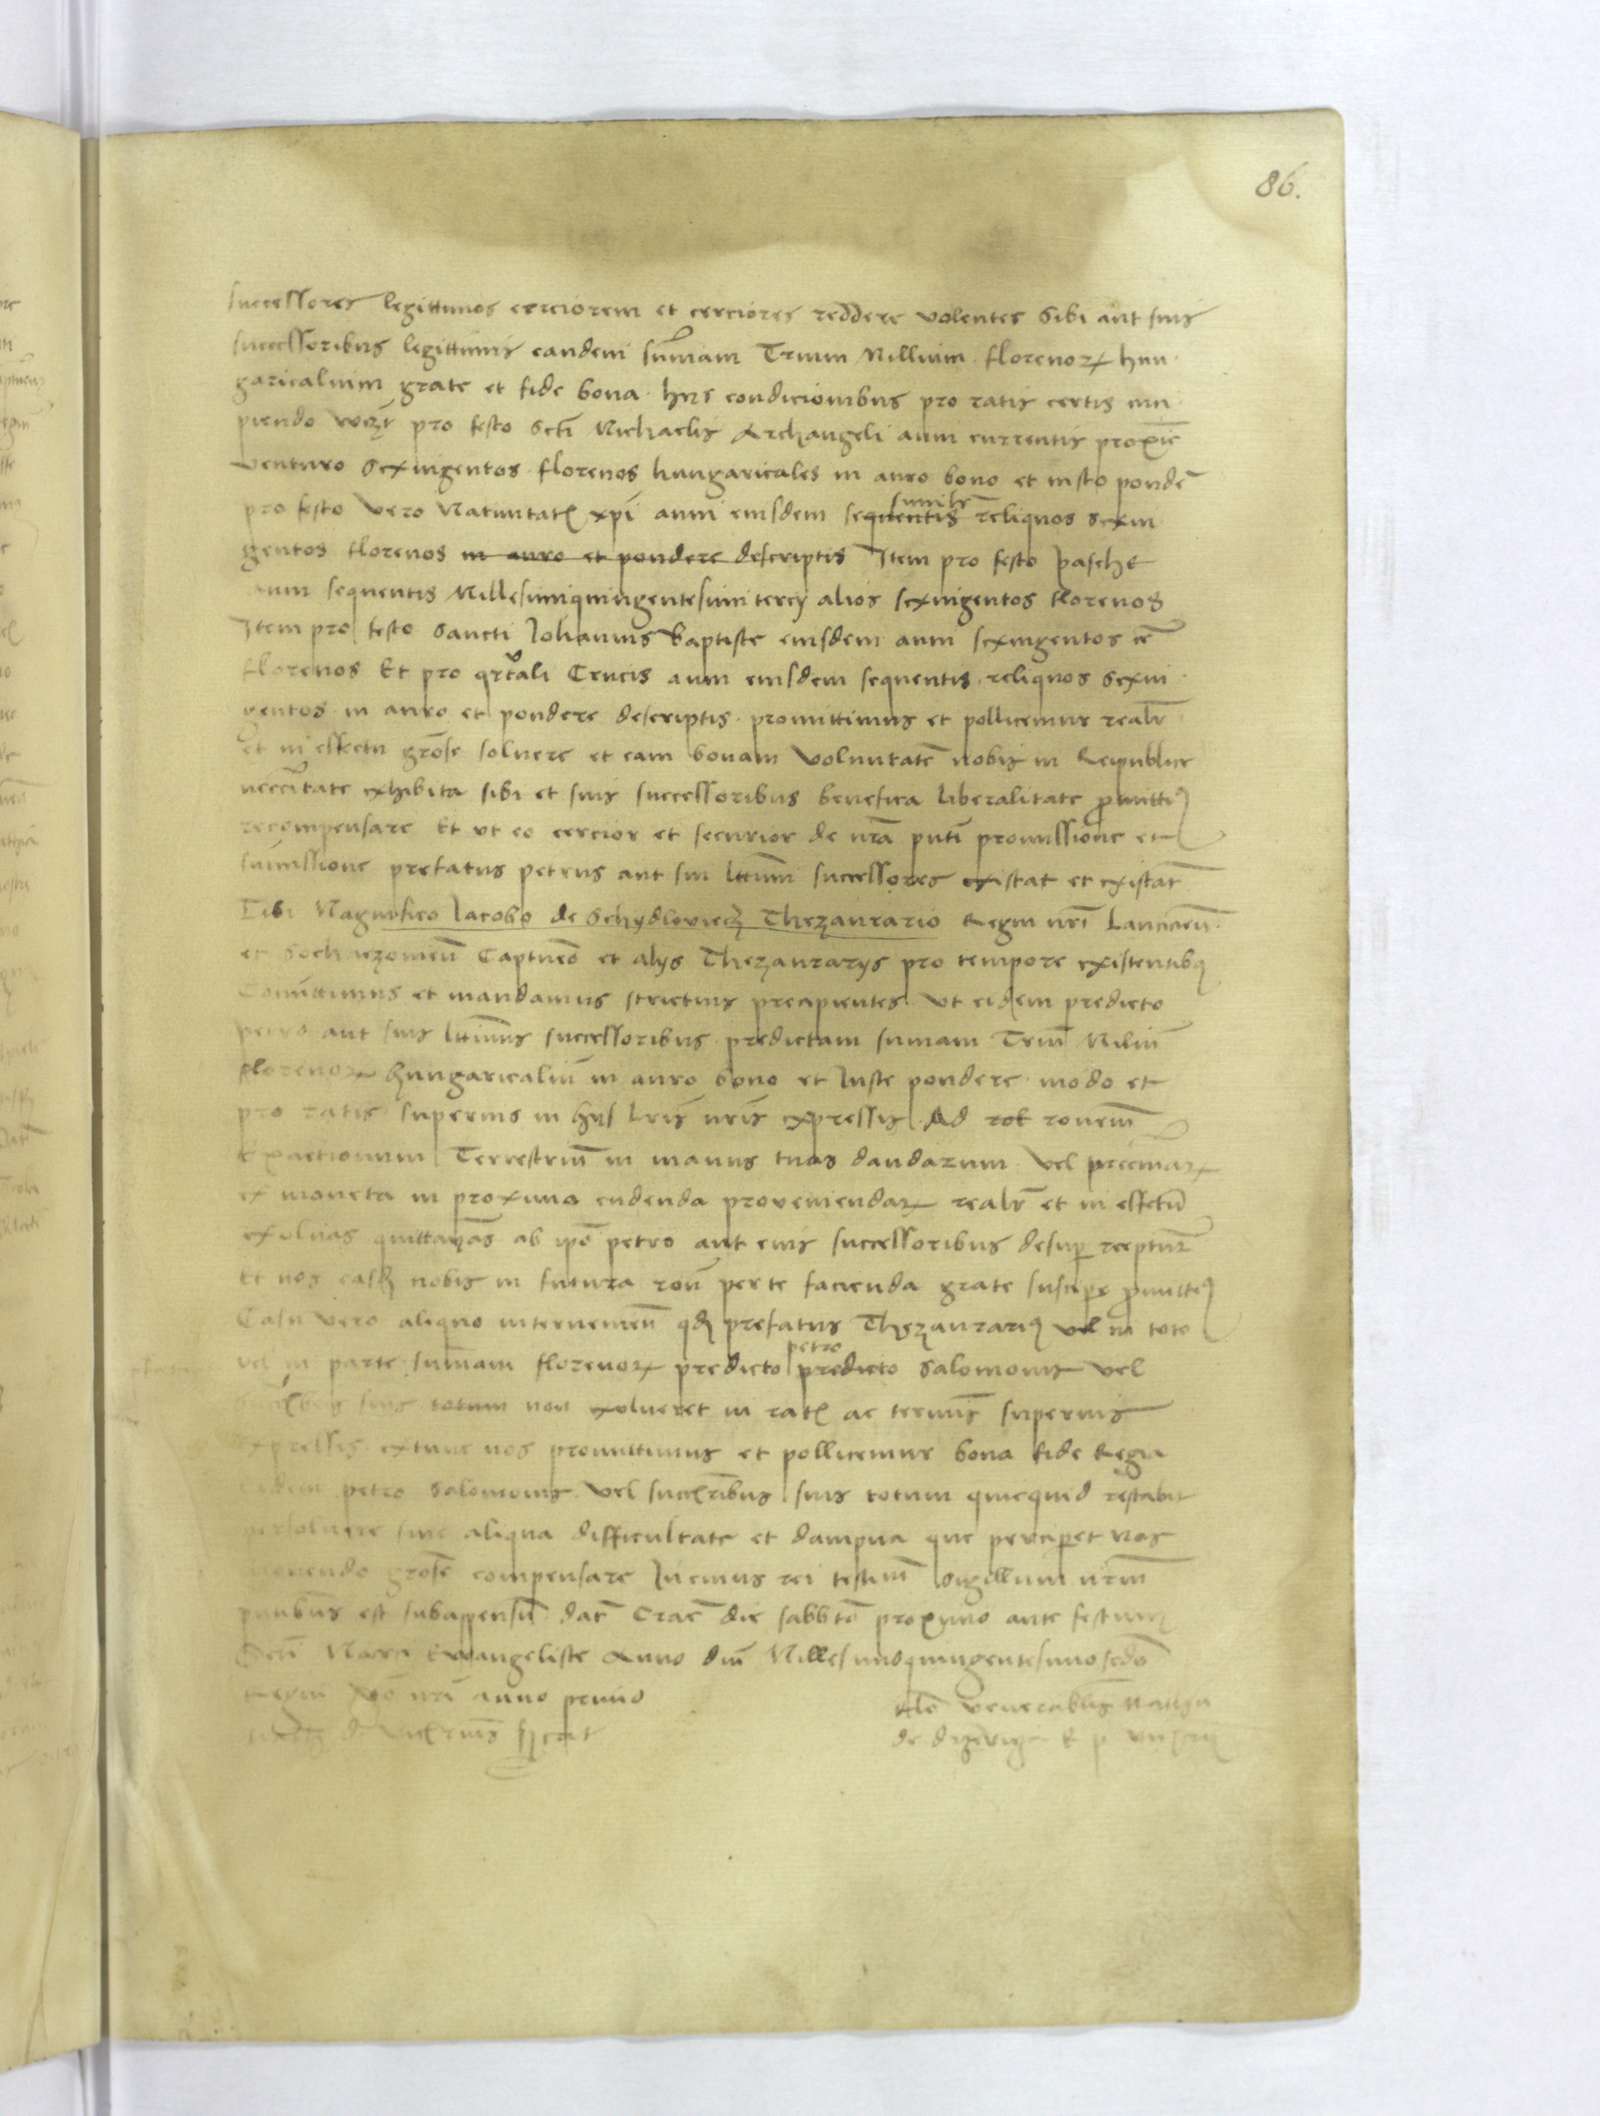 86.
successores legittimos cerciorem et cerciores reddere volentes Sibi aut suis
successoribus legittimis eandem sum̄am Trium Millium florenoꝝ hun
garicalium grate et fide bona hijs condicionibus pro ratis certis inci
piendo vcꝫt pro festo Scti Michaelis Archangeli anni currentis proxīe
venturo Sexingentos florenos hungaricales in auro bono et iusto pondē
pro festo vero Natiuitatꝭ xpi anni eiusdem sequentis similr̄ reliquos sexin
gentos florenos in auro et pondere descriptis Item pro festo pasche
anni sequentis Millesimiquingentesimi tercij alios sexingentos florenos
Item pro festo Sancti Johannis Baptiste eiusdem anni sexingentos
florenos Et pro qrtali Crucis anni eiusdem sequentis reliquos Sexin
gentos in auro et pondere descriptis promittimus et pollicemur realr̄
et in effectu grōse soluere et eam bonam voluntatē nobis in Reipublice
necc̄itate exhibita sibi et suis successoribus benefica liberalitate ꝓmittiꝰ
recompensare Et vt eo cercior et securior de nr̄a pn̄ti promissione et
sum̄issione prefatus petrus aut sui ltt̄imi successores existat et existāt
Tibi Magnifico Jacobo de Schydloviecz Thezaurario Regni nr̄i Lancicieñ
et Sochaczovieñ Capitneo et alijs Thezaurarijs pro tempore existentibꝰ
Com̄ittimus et mandamus strictius precipientes vt eidem predicto
petro aut suis ltt̄imis successoribus predictam sum̄am Triū Miliū
florenoꝝ hungaricaliū in auro bono et Iuste pondere modo et
pro ratis superius in hijs lr̄is nr̄is expressis Ad
Exactionum Terrestriū in manus tuas dandarum vel pecc̄iaꝝ
ex moneta in proximo cudenda proueniendaꝝ realr̄ et in effectu
exoluas quittan̄as ab ipo petro aut eius successoribus desuꝑ recepturꝰ
Et nos easdꝫ nobis in futura roñ per te facienda grate suscipe ꝓmittiꝰ
Casu vero aliquo intervenieñ qđ prefatus Thezaurariꝰ vel in toto
vel in parte sum̄am florenoꝝ predicto petro predicto Salomonis vel
suis totum non exolueret in ratꝭ ac termīs superius
expressis extunc nos promittimus et pollicemur bona fide Regia
eidem petro Salomonis vel succꝭribus suis totum quicquid restabit
persoluere sine aliqua difficultate et dampna que perciperet nos
monendo grōse compensare In cuius rei testim̄ Sigillum nrm̄
pn̄tibus est subappensū dat̄ Crac̄ die sabbto proximo ante festum
Scti Marci Ewangeliste Anno dnī Millesimoquingentesimoscdo
Regni nr̄i anno primo
Rlo venerabilis